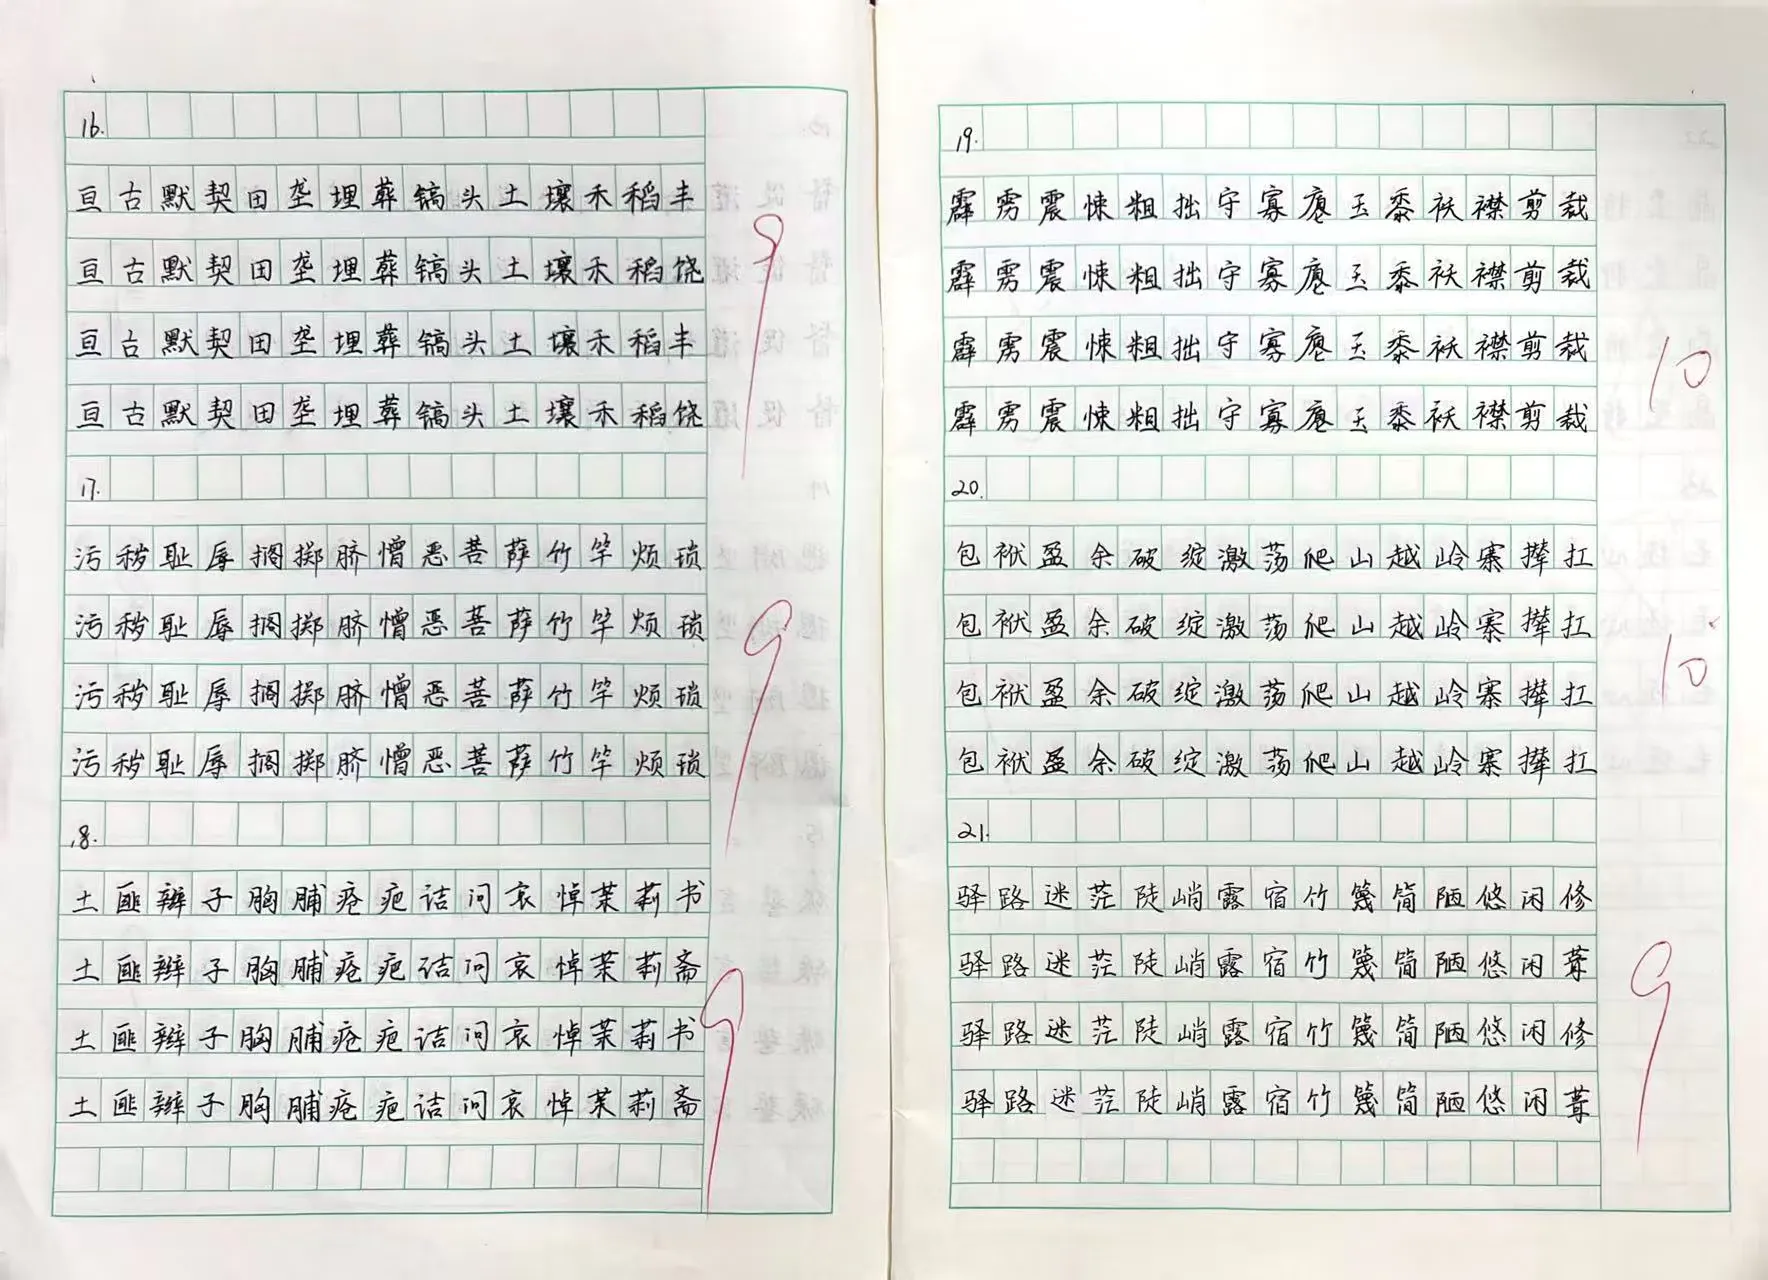 16.
亘古默契田垄埋葬镐头土壤禾稻丰
亘古默契田垄埋葬镐头土壤禾稻饶
亘古默契田垄埋葬镐头土壤禾稻丰
亘古默契田垄埋葬镐头土壤禾稻饶
9
17.
污秽耻辱搁掷脐憎恶菩萨竹竿烦琐
污秽耻辱搁掷脐憎恶菩萨竹竿烦琐
污秽耻辱搁掷脐憎恶菩萨竹竿烦琐
污秽耻辱搁掷脐憎恶菩萨竹竿烦琐
9
18.
土匪辫子胸脯疮疤诘问哀悼茉莉书
土匪辫子胸脯疮疤诘问哀悼茉莉斋
土匪辫子胸脯疮疤诘问哀悼茉莉书
土匪辫子胸脯疮疤诘问哀悼茉莉斋
9
19.
霹雳震悚粗拙守寡疮玉黍袄襟剪裁
霹雳震悚粗拙守寡疮玉黍袄襟剪裁
霹雳震悚粗拙守寡疮玉黍袄襟剪裁
霹雳震悚粗拙守寡疮玉黍袄襟剪裁
10
20.
包袱盈余破绽激荡爬山越岭寨撵扛
包袱盈余破绽激荡爬山越岭寨撵扛
包袱盈余破绽激荡爬山越岭寨撵扛
包袱盈余破绽激荡爬山越岭寨撵扛
10
21.
驿路迷茫陡峭露宿竹篾简陋悠闲修
驿路迷茫陡峭露宿竹篾简陋悠闲葺
驿路迷茫陡峭露宿竹篾简陋悠闲修
驿路迷茫陡峭露宿竹篾简陋悠闲葺
9